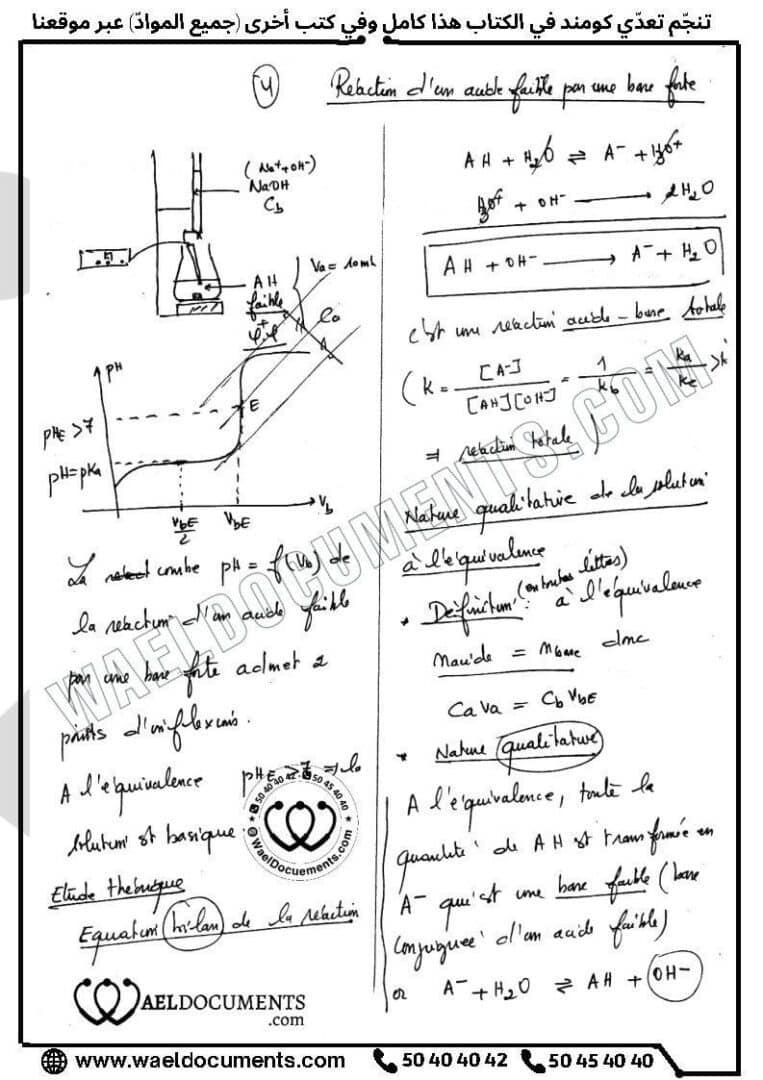 تنجّم تعدّي كومند في الكتاب هذا كامل وفي كتب أخرى (جميع الموادّ) عبر موقعنا
4
Réaction d'un acide faible par une base forte
(Na⁺+OH⁻)
NaOH
Cb
AH
faible
Va = 10 mL
Ca
pH
E
pHE >7
pH=pKa
VbE/2
VbE
Vb
La courbe pH = f(Vb) de
la réaction d'un acide faible
par une base forte admet 2
points d'inflexions.
A l'équivalence pHE >7 ⇒ la
solution est basique.
Etude théorique
Equation bilan de la réaction
AH + H₂O ⇌ A⁻ + H₃O⁺
H₃O⁺ + OH⁻ ⟶ 2H₂O
AH + OH⁻ ⟶ A⁻ + H₂O
c'est une réaction acide-base totale
(K = [A⁻]/[AH][OH⁻] = 1/Kb = Ka/Ke >
⇒ réaction totale)
Nature qualitative de la solution
à l'équivalence
* Définition (en toutes lettres) : à l'équivalence
nacide = nbase donc
CaVa = CbVbE
* Nature qualitative
A l'équivalence, toute la
quantité de AH est transformée en
A⁻ qui est une base faible (base
conjuguée d'un acide faible)
or A⁻ + H₂O ⇌ AH + OH⁻
WAELDOCUMENTS.COM
50 40 40 42 50 45 40 40
@WaelDocuements.com
WAELDOCUMENTS
.com
www.waeldocuments.com 50 40 40 42 50 45 40 40